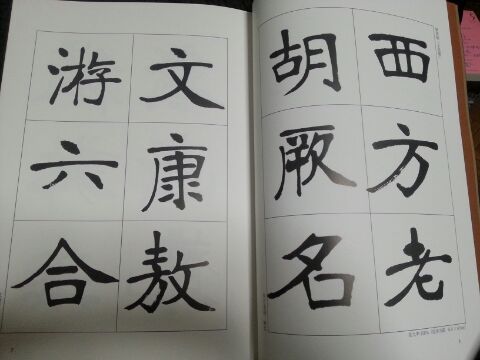 西方老
胡厥名
文康敖
游六合